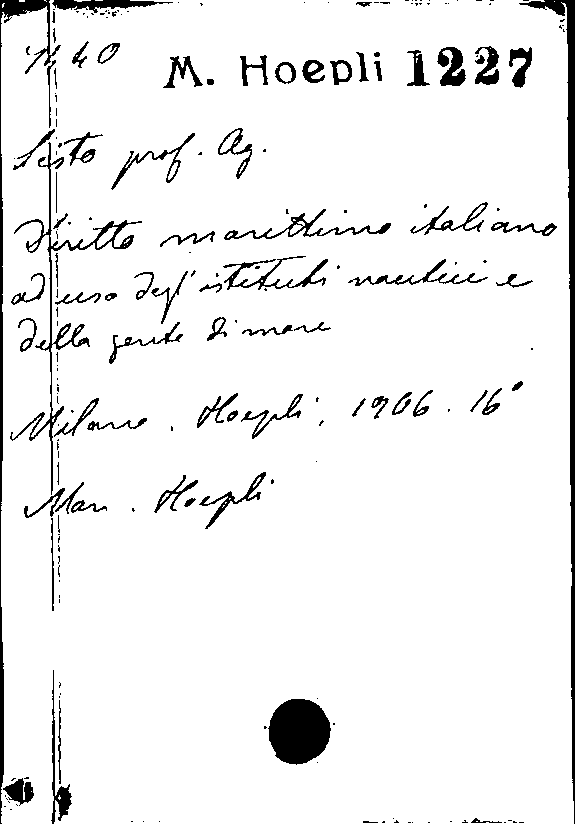 M. Hoepli 1227
Sisto prof. Ag.
Diritto marittimo italiano
ad uso degl'istituti nautici e
della gente di mare
Milano. Hoepli, 1906. 16°
Man. Hoepli